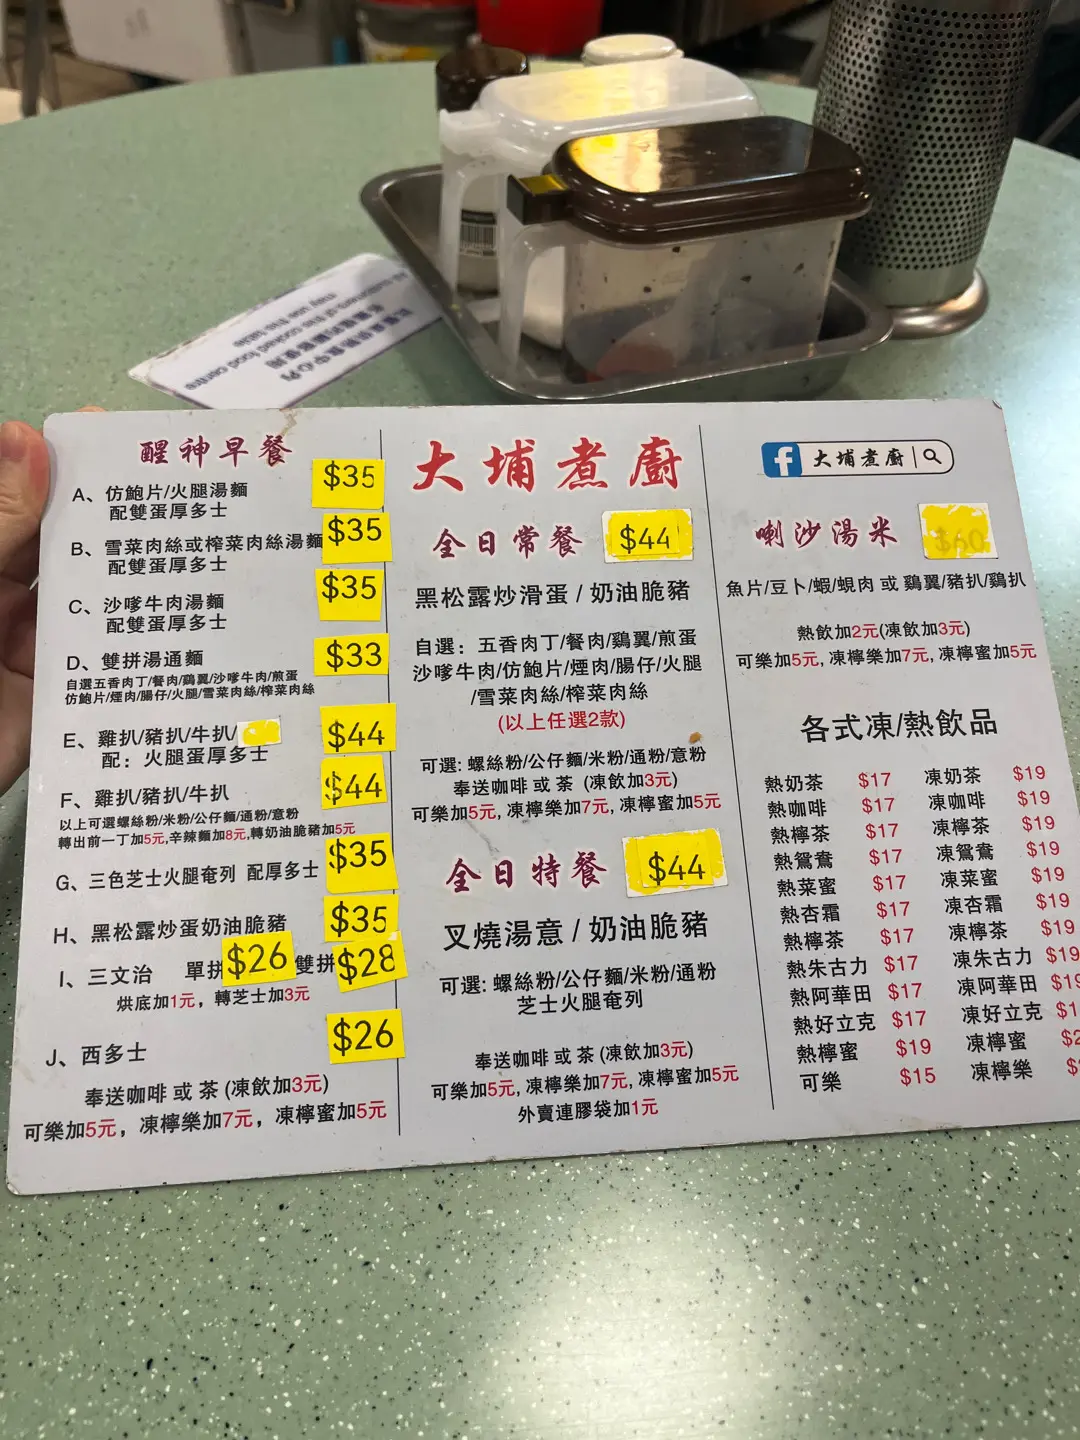 All customers of this cooked food centre
may use this table
大埔煮廚
醒神早餐
A、仿鮑片/火腿湯麵 $35
配雙蛋厚多士
B、雪菜肉絲或榨菜肉絲湯麵 $35
配雙蛋厚多士
C、沙嗲牛肉湯麵 $35
配雙蛋厚多士
D、雙拼湯通麵 $33
自選五香肉丁/餐肉/鷄翼/沙嗲牛肉/煎蛋
仿鮑片/煙肉/腸仔/火腿/雪菜肉絲/榨菜肉絲
E、雞扒/豬扒/牛扒/ $44
配：火腿蛋厚多士
F、雞扒/豬扒/牛扒 $44
以上可選螺絲粉/米粉/公仔麵/通粉/意粉
轉出前一丁加5元,辛辣麵加8元,轉奶油脆豬加5元
G、三色芝士火腿奄列 配厚多士 $35
H、黑松露炒蛋奶油脆豬 $35
I、三文治 單拼 $26 雙拼 $28
烘底加1元，轉芝士加3元
J、西多士 $26
奉送咖啡 或 茶 (凍飲加3元)
可樂加5元，凍檸樂加7元，凍檸蜜加5元
全日常餐 $44
黑松露炒滑蛋 / 奶油脆豬
自選：五香肉丁/餐肉/鷄翼/煎蛋
沙嗲牛肉/仿鮑片/煙肉/腸仔/火腿
/雪菜肉絲/榨菜肉絲
(以上任選2款)
可選: 螺絲粉/公仔麵/米粉/通粉/意粉
奉送咖啡 或 茶 (凍飲加3元)
可樂加5元, 凍檸樂加7元, 凍檸蜜加5元
全日特餐 $44
叉燒湯意 / 奶油脆豬
可選: 螺絲粉/公仔麵/米粉/通粉
芝士火腿奄列
奉送咖啡 或 茶 (凍飲加3元)
可樂加5元, 凍檸樂加7元, 凍檸蜜加5元
外賣連膠袋加1元
f 大埔煮廚
喇沙湯米 $60
魚片/豆卜/蝦/蜆肉 或 鷄翼/豬扒/鷄扒
熱飲加2元(凍飲加3元)
可樂加5元, 凍檸樂加7元, 凍檸蜜加5元
各式凍/熱飲品
熱奶茶 $17 凍奶茶 $19
熱咖啡 $17 凍咖啡 $19
熱檸茶 $17 凍檸茶 $19
熱鴛鴦 $17 凍鴛鴦 $19
熱菜蜜 $17 凍菜蜜 $19
熱杏霜 $17 凍杏霜 $19
熱檸茶 $17 凍檸茶 $19
熱朱古力 $17 凍朱古力 $19
熱阿華田 $17 凍阿華田 $19
熱好立克 $17 凍好立克
熱檸蜜 $19 凍檸蜜
可樂 $15 凍檸樂